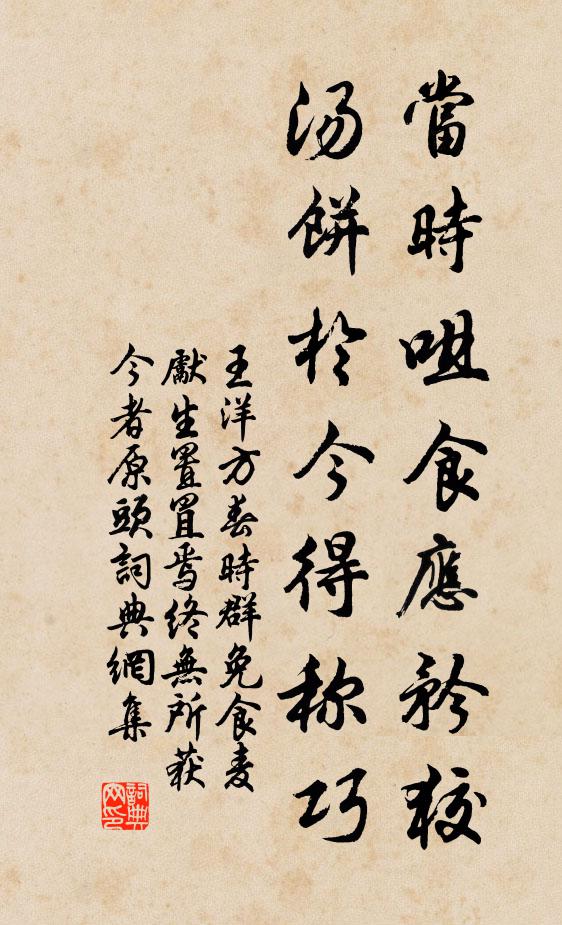 當時咀食應矜狡
湯餅於今得称巧
王洋方春時群兔食麦
獻生置罝焉終無所获
今者原頭詞典網集
詞典
网印